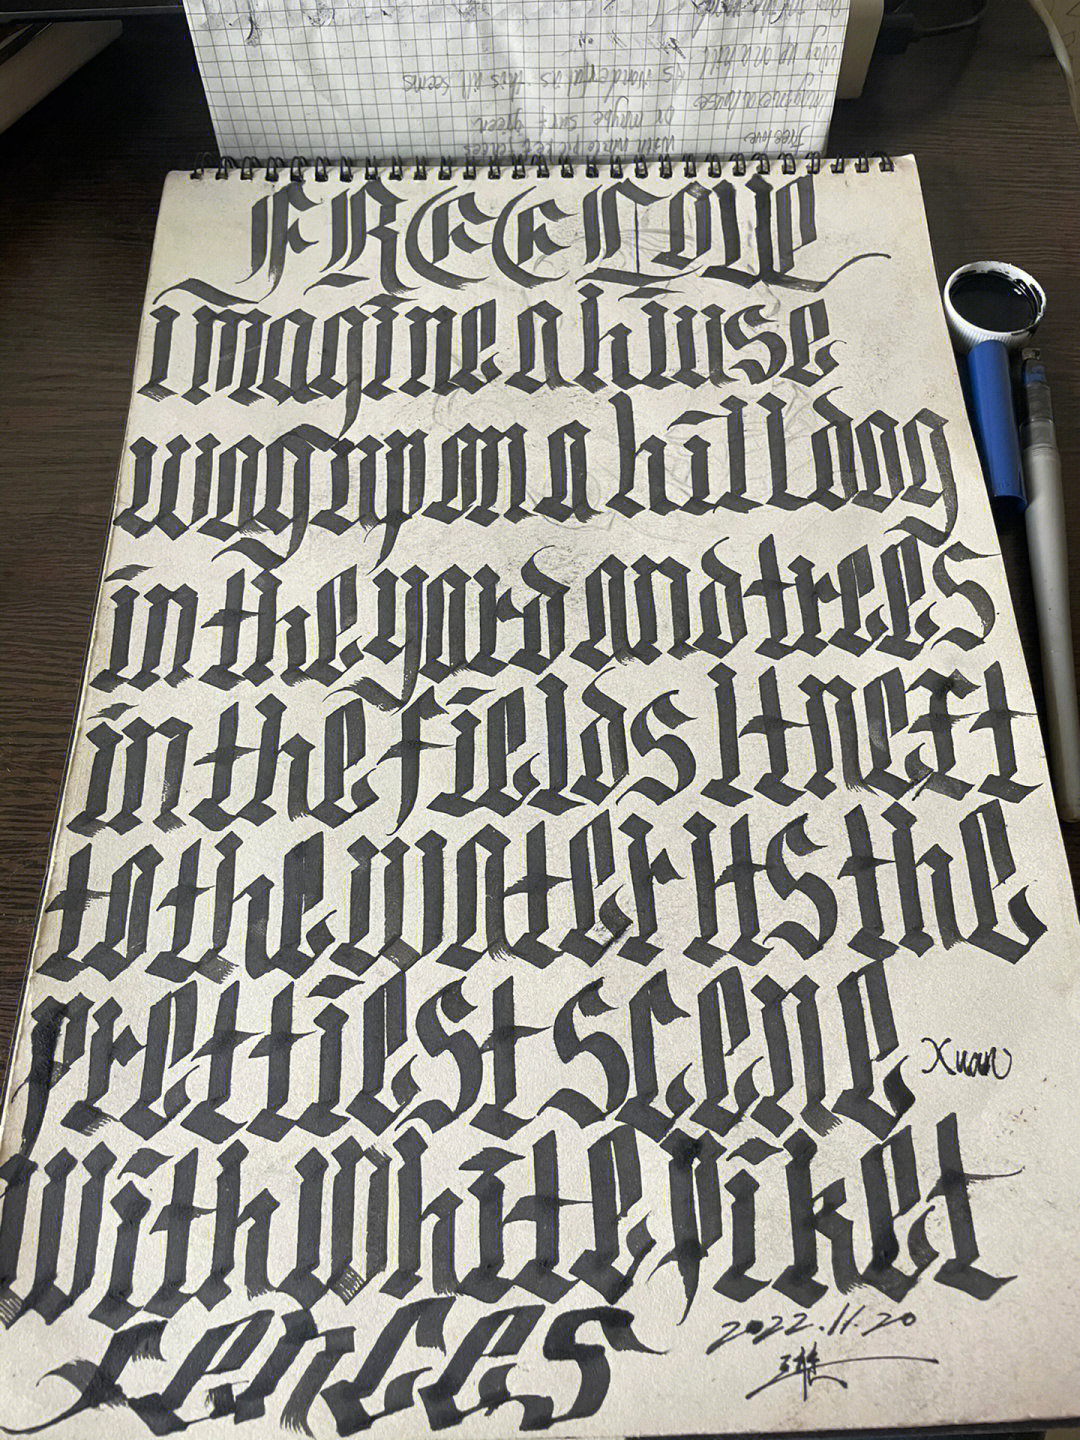 FREE LOVE
imagine a house
way up on a hill dog
in the yard and trees
in the fields It next
to the water its the
prettiest scene
Xuan
with white piket
fences
2022.11.20
Free love
imagine a house
way up on a hill
with white picket fences
or maybe surf green
as wonderful as this all seems